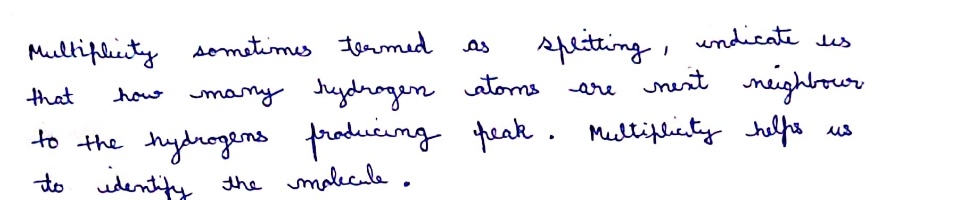 Multiplicity sometimes termed as splitting, indicate us
that how many hydrogen atoms are next neighbour
to the hydrogens producing peak. Multiplicity helps us
to identify the molecule.